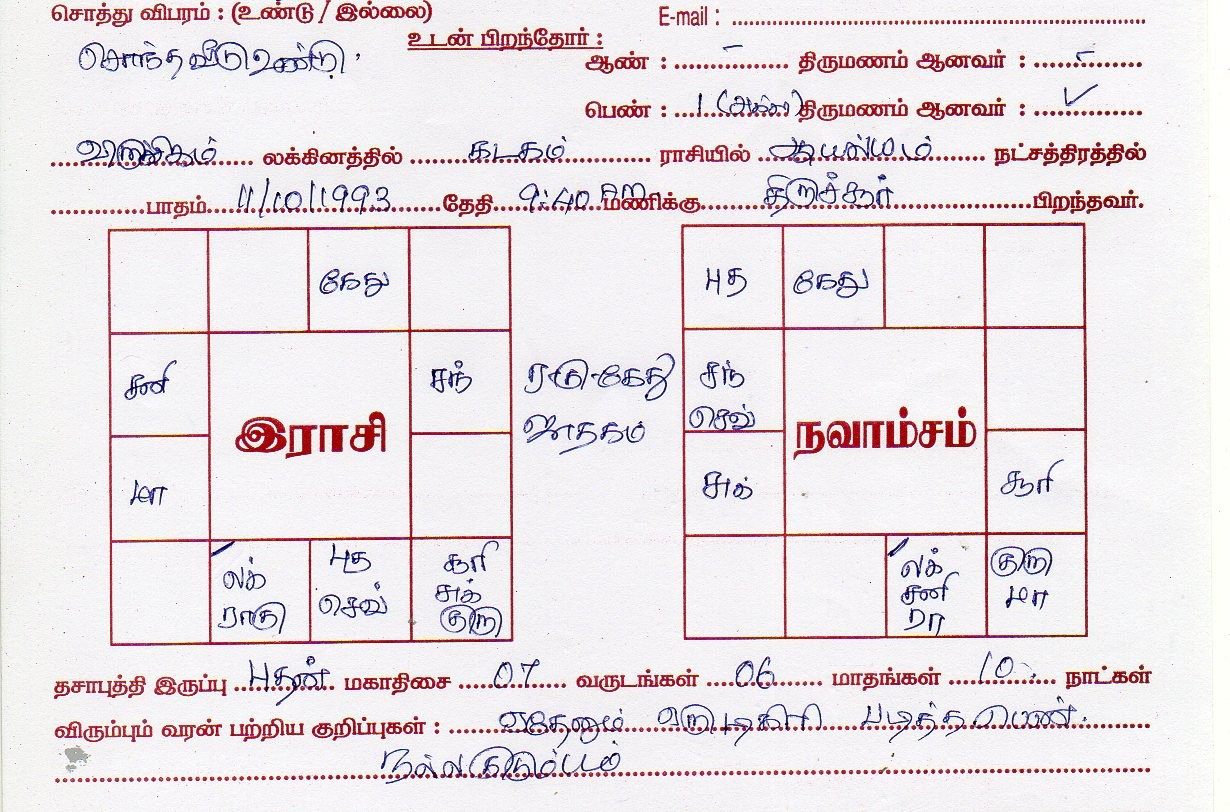 சொத்து விபரம் : (உண்டு / இல்லை)
E-mail :
சொந்த வீடு உண்டு.
உடன் பிறந்தோர் :
ஆண் : - திருமணம் ஆனவர் : -
பெண் : 1 (அக்கா) திருமணம் ஆனவர் : ✓
விருச்சிகம் லக்கினத்தில் கடகம் ராசியில் ஆயில்யம் நட்சத்திரத்தில்
பாதம் 11/10/1993 தேதி 9:40 மணிக்கு திருச்சூர் பிறந்தவர்.
கேது
சனி
சந்
மா
இராசி
லக்
ராகு
புத
செவ்
சூரி
சுக்
குரு
ராகு-கேது
ஜாதகம்
புத
கேது
சந்
செவ்
சுக்
நவாம்சம்
சூரி
லக்
சனி
ரா
குரு
மா
தசாபுத்தி இருப்பு புதன் மகாதிசை 07 வருடங்கள் 06 மாதங்கள் 10 நாட்கள்
விரும்பும் வரன் பற்றிய குறிப்புகள் : ஏதேனும் ஒரு டிகிரி படித்த பெண்.
நல்ல குடும்பம்